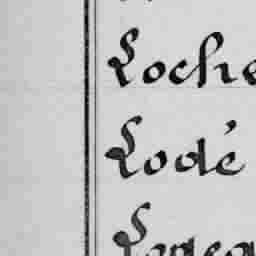 Loche
Lodé